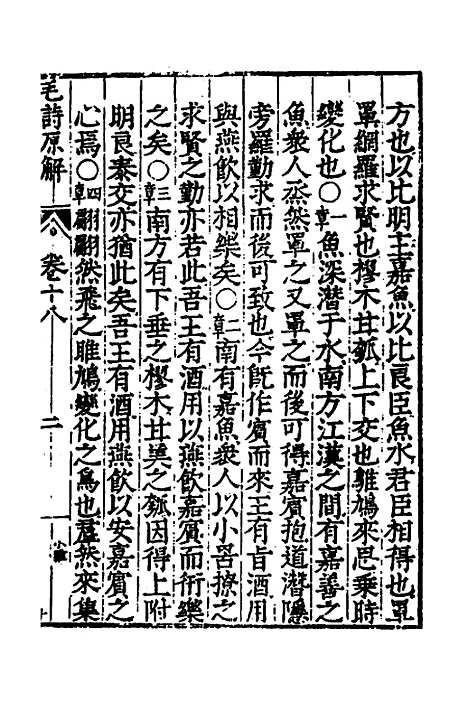 方也以比明王嘉魚以比良臣魚水君臣相得也罩
罩網羅求賢也樛木甘瓠上下交也鵻鳩來思乘時
變化也〇一章魚深潛于水南方江漢之間有嘉善之
魚衆人烝然罩之又罩之而後可得嘉賓抱道潛隱
旁羅勤求而後可致也今旣作賓而來王有旨酒用
與燕飲以相樂矣〇二章南有嘉魚衆人以小罟撩之
求賢之勤亦若此吾王有酒用以燕飲嘉賓而衎樂
之矣〇三章南方有下垂之樛木甘美之瓠因得上附
明良泰交亦猶此矣吾王有酒用燕飲以安嘉賓之
心焉〇四章翩翩然飛之鵻鳩變化之鳥也羣然來集
毛詩原解
卷十八
二
小雅